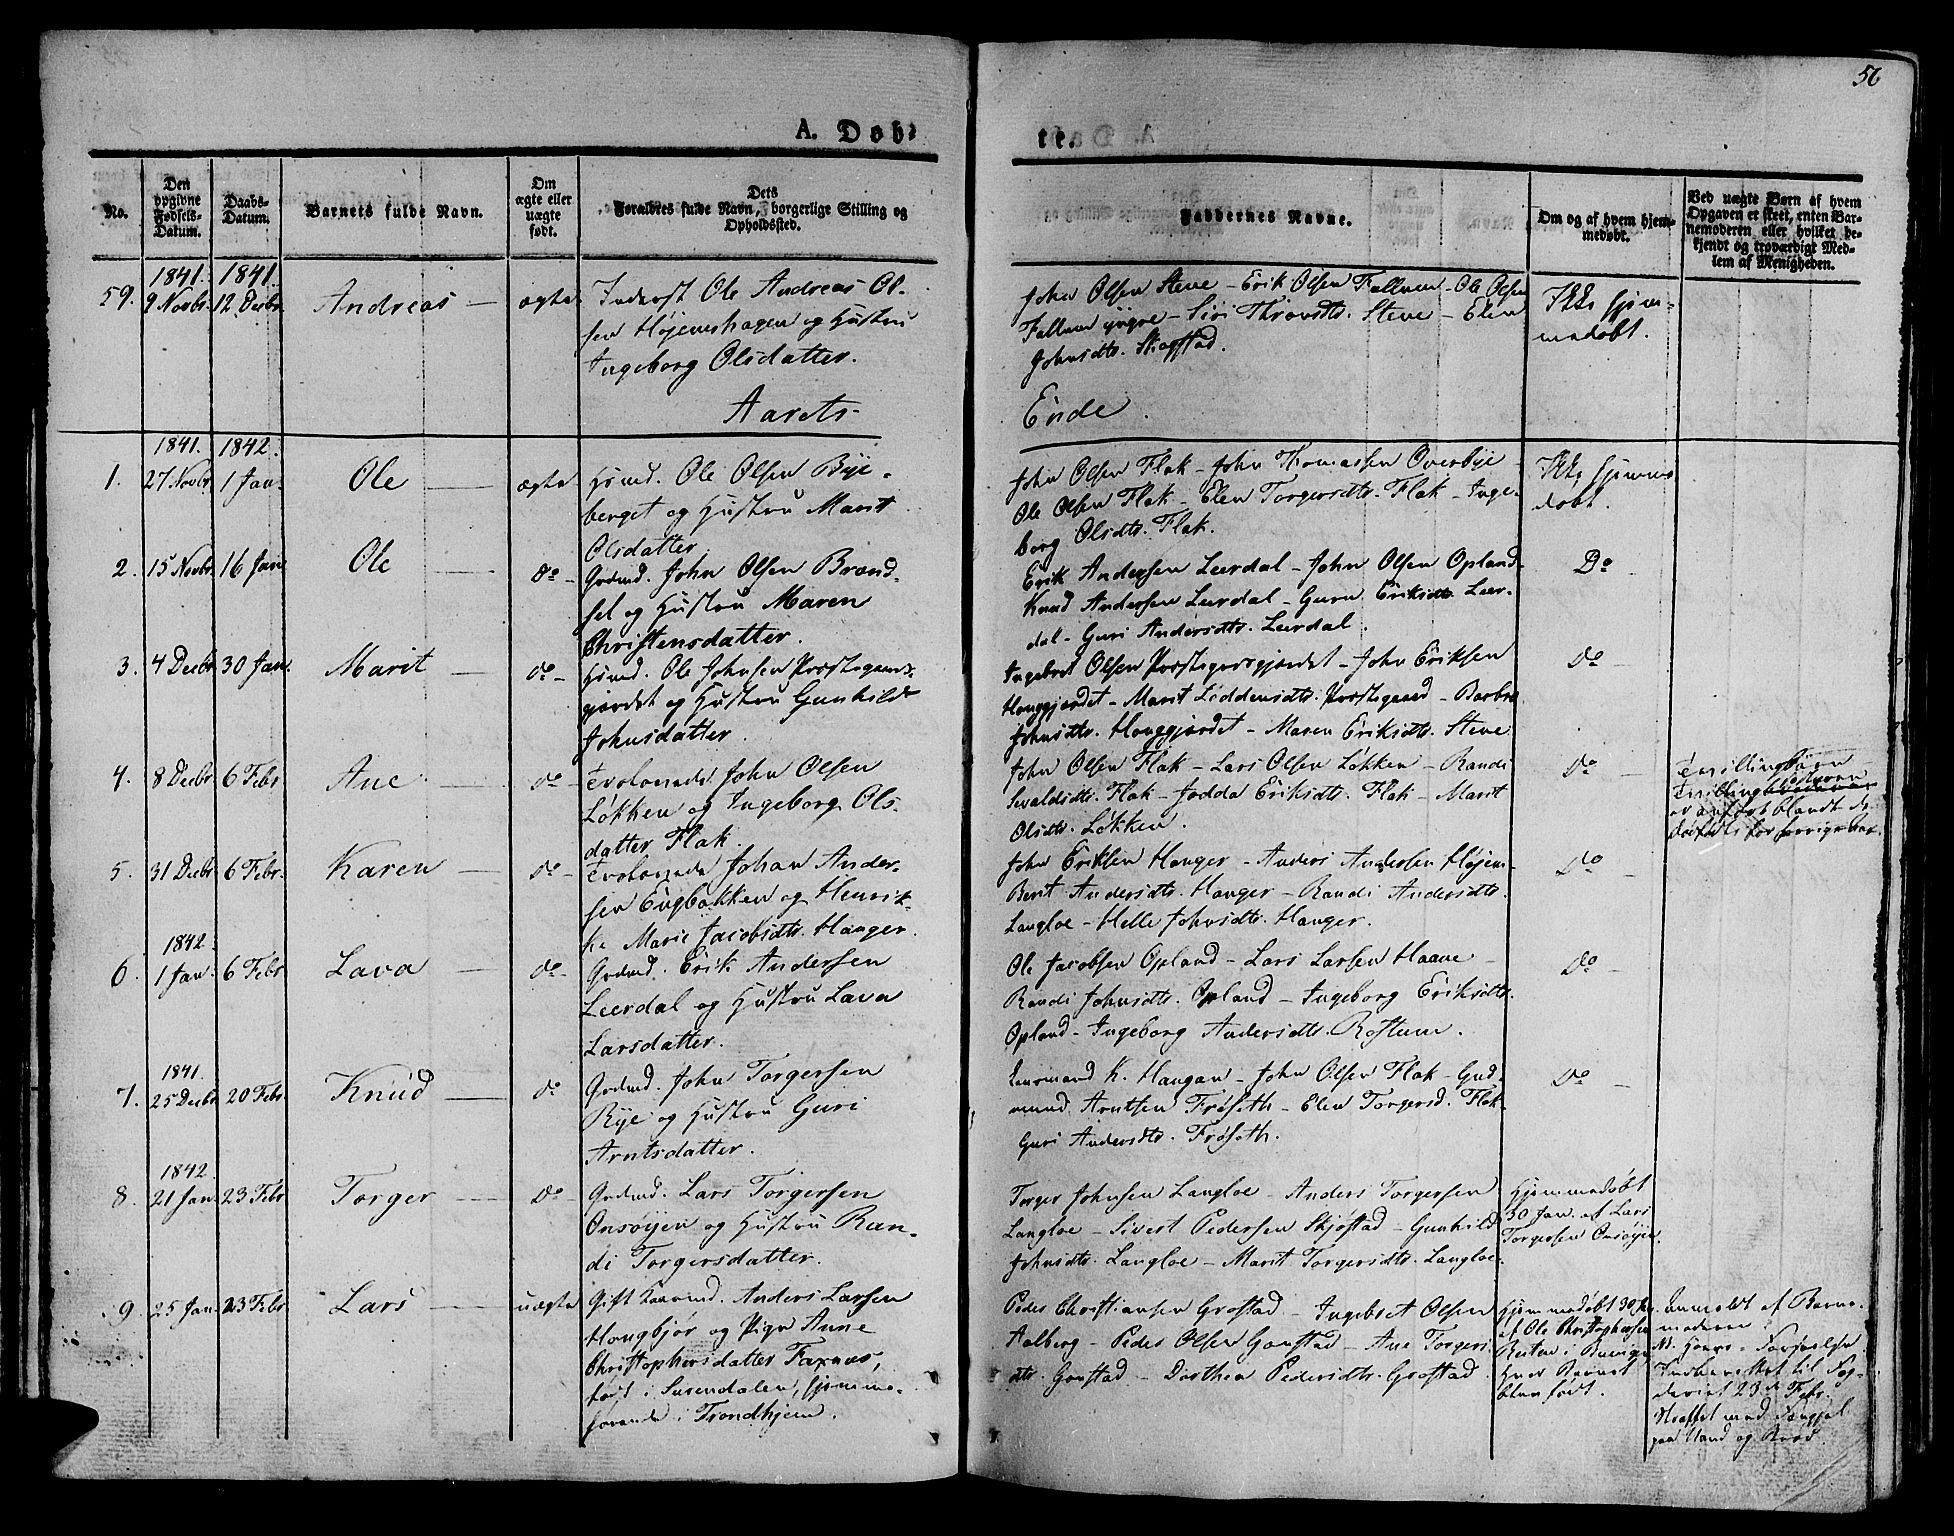 56
A. Døbte.
No.
Den opgivne Fødsels-Datum.
Daabs-Datum.
Barnets fulde Navn.
Om ægte eller uægte født.
Dets Forældres fulde Navn, borgerlige Stilling og Opholdssted.
Faddernes Navne.
Om og af hvem hjemmedøbt.
Ved uægte Børn af hvem Opgaven er skeet, enten Barnemoderen eller hvilket bekjendt og troværdigt Medlem af Menigheden.
1841. 1841.
59. 9 Novbr. 12 Decbr. Andreas — ægte
Inderst Ole Andreas Ol-
sen Højemshagen og Hustru
Ingeborg Olsdatter.
John Olsen Steve – Erik Olsen Fallum – Ole Olsen
Fallum yngre – Siri Throndsdtr. Steve – Elen
Johnsdtr. Skogstad.
Ikke hjem-
medøbt.
Aarets-
Ende.
1841. 1842.
1. 27 Novbr. 1 Jan. Ole — ægte
Huusmd. Ole Olsen Bye-
berget og Hustru Marit
Olsdatter
John Olsen Flak – John Thomassen Overbye –
Ole Olsen Flak – Elen Torgersdtr. Flak – Inge-
borg Olsdtr. Flak.
Ikke hjemme-
døbt.
2. 15 Novbr. 16 Jan. Ole — do –
Grdmd. John Olsen Brand-
sel og Hustru Maren
Christensdatter.
Erik Andersen Leerdal – John Olsen Opland –
Knud Andersen Leerdal – Guru Eriksdtr. Leer-
dal – Guri Andersdtr. Leerdal.
Do
3. 4 Decbr. 30 Jan. Marit — do –
Huusmd. Ole Johnsen Præstegaards-
gjerdet og Hustru Gunhild
Johnsdatter.
Ingebret Olsen Præstegrsgjerdet – John Eriksen
Hauggjerdet – Marit Loddensdtr. Præstegaard – Barbro
Johnsdtr. Hauggjerdet – Maren Eriksdtr. Steve
do
4. 8 Decbr. 6 Febr. Ane — do
Trolovede John Olsen
Løkken og Ingeborg Ols-
datter Flak.
John Olsen Flak – Lars Olsen Løkken – Randi
Sivaldsdtr. Flak – Jodda Eriksdtr. Flak – Marit
Olsdtr. Løkken.
do –
Tvillingbarn
er anført blandt de
dødfødte for forrige Aar.
5. 31 Decbr. 6 Febr. Karen — do
Trolovede Johan Ander-
sen Engbakken og Henrik-
ke Marie Jacobsdtr. Hanger.
John Eriksen Hanger – Anders Andersen Højem –
Berit Andersdtr. Hanger – Randi Andersdtr.
Langloe – Helle Johnsdtr. Hanger.
do –
1842.
6. 1 Jan. 6 Febr. Lava — do –
Grdmd. Erik Andersen
Leerdal og Hustru Lava
Larsdatter.
Ole Jacobsen Opland – Lars Larsen Haave –
Randi Johnsdtr. Opland – Ingeborg Eriksdtr.
Opland – Ingeborg Andersdtr. Rostum.
do –
1841.
7. 25 Decbr. 20 Febr. Knud — do
Grdmd. John Torgersen
Rye og Hustru Guri
Arntsdatter.
Lensmand K. Haugan – John Olsen Flak – Gud-
mund Arntsen Frøseth – Elen Torgersd. Flak –
Guri Andersdtr. Frøseth.
do –
1842.
8. 21 Jan. 23 Febr. Torger — do –
Grdmd. Lars Torgersen
Onsøyen og Hustru Ran-
di Torgersdatter.
Torger Johnsen Langloe – Anders Torgersen
Langloe – Sivert Pedersen Skjøstad – Gunhild
Johnsdtr. Langloe – Marit Torgersdtr. Langloe.
Hjemmedøbt
30 Jan. af Lars
Torgersen Onsøyen.
9. 25 Jan. 23 Febr. Lars — uægte
Gift Huusmd. Anders Larsen
Haugbjør og Pige Anne
Christophersdatter Faxnæs,
født i Surendalen, hjemme-
hørende i Trondhjem.
Peder Christiansen Grostad – Ingebret Olsen
Aalberg – Peder Olsen Gaustad – Ane Torgers-
dtr. Gaustad – Dorthea Pedersdtr. Grostad.
Hjemmedøbt 30 Jan.
af Ole Christophersen
hvor Barnet
blev født.
Anmeldt af Barne-
moderen.
Indberettet til Fog-
deriet 23de Febr.
Straffet med Fængsel
paa Vand og Brød.